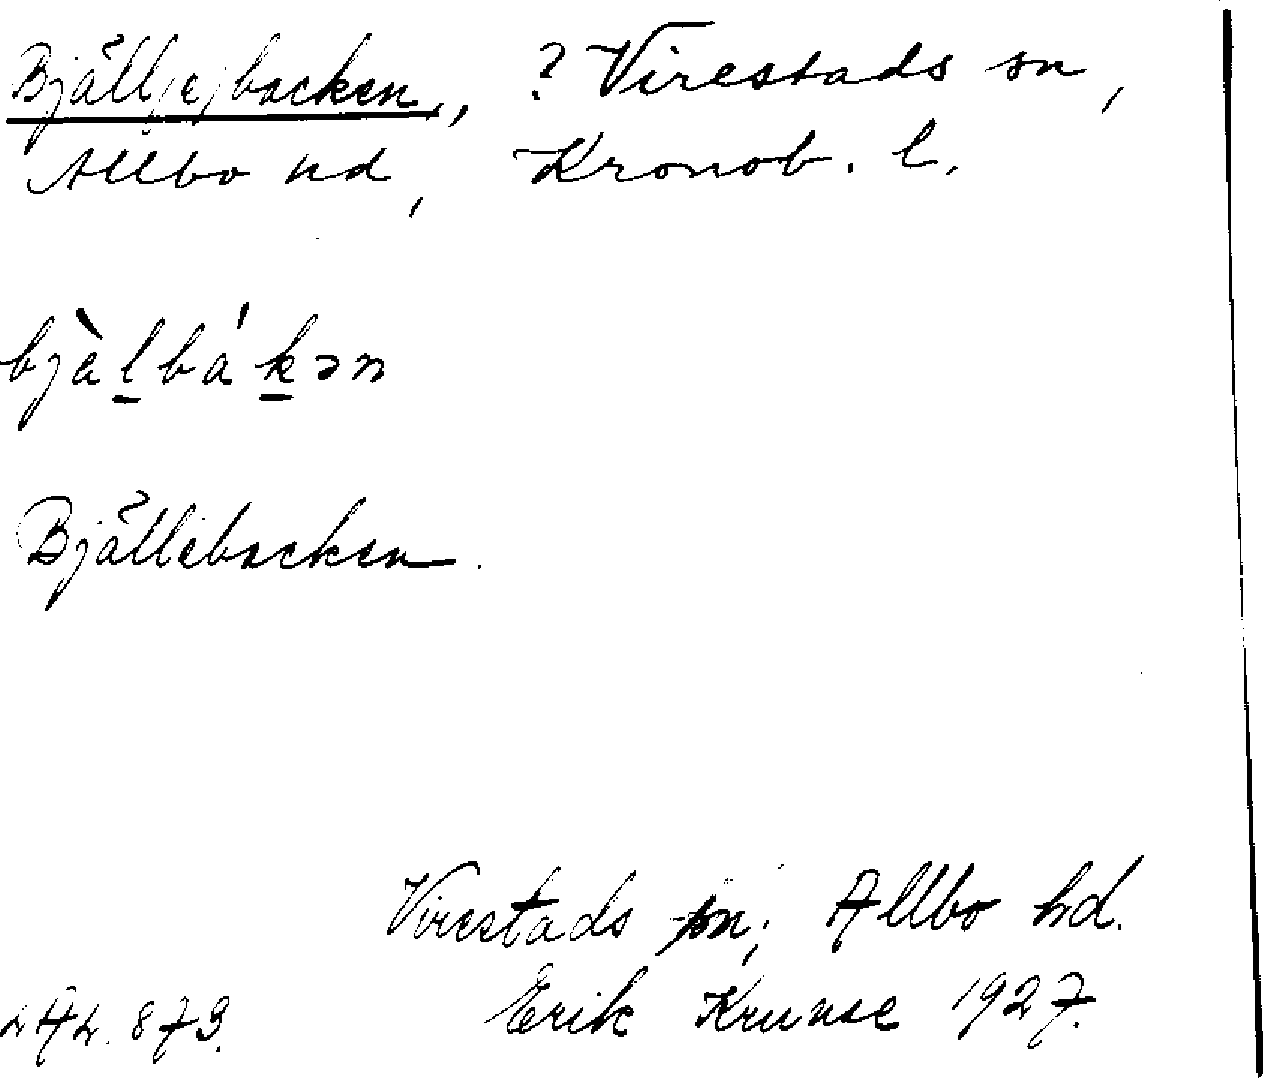 Bjäll(e)backen, ? Virestads sn,
Allbo hd, Kronob. l.
bjàlbákən
Bjällebacken.
Virestads sn; Allbo hd.
LAL. 873. Erik Krunse 1927.